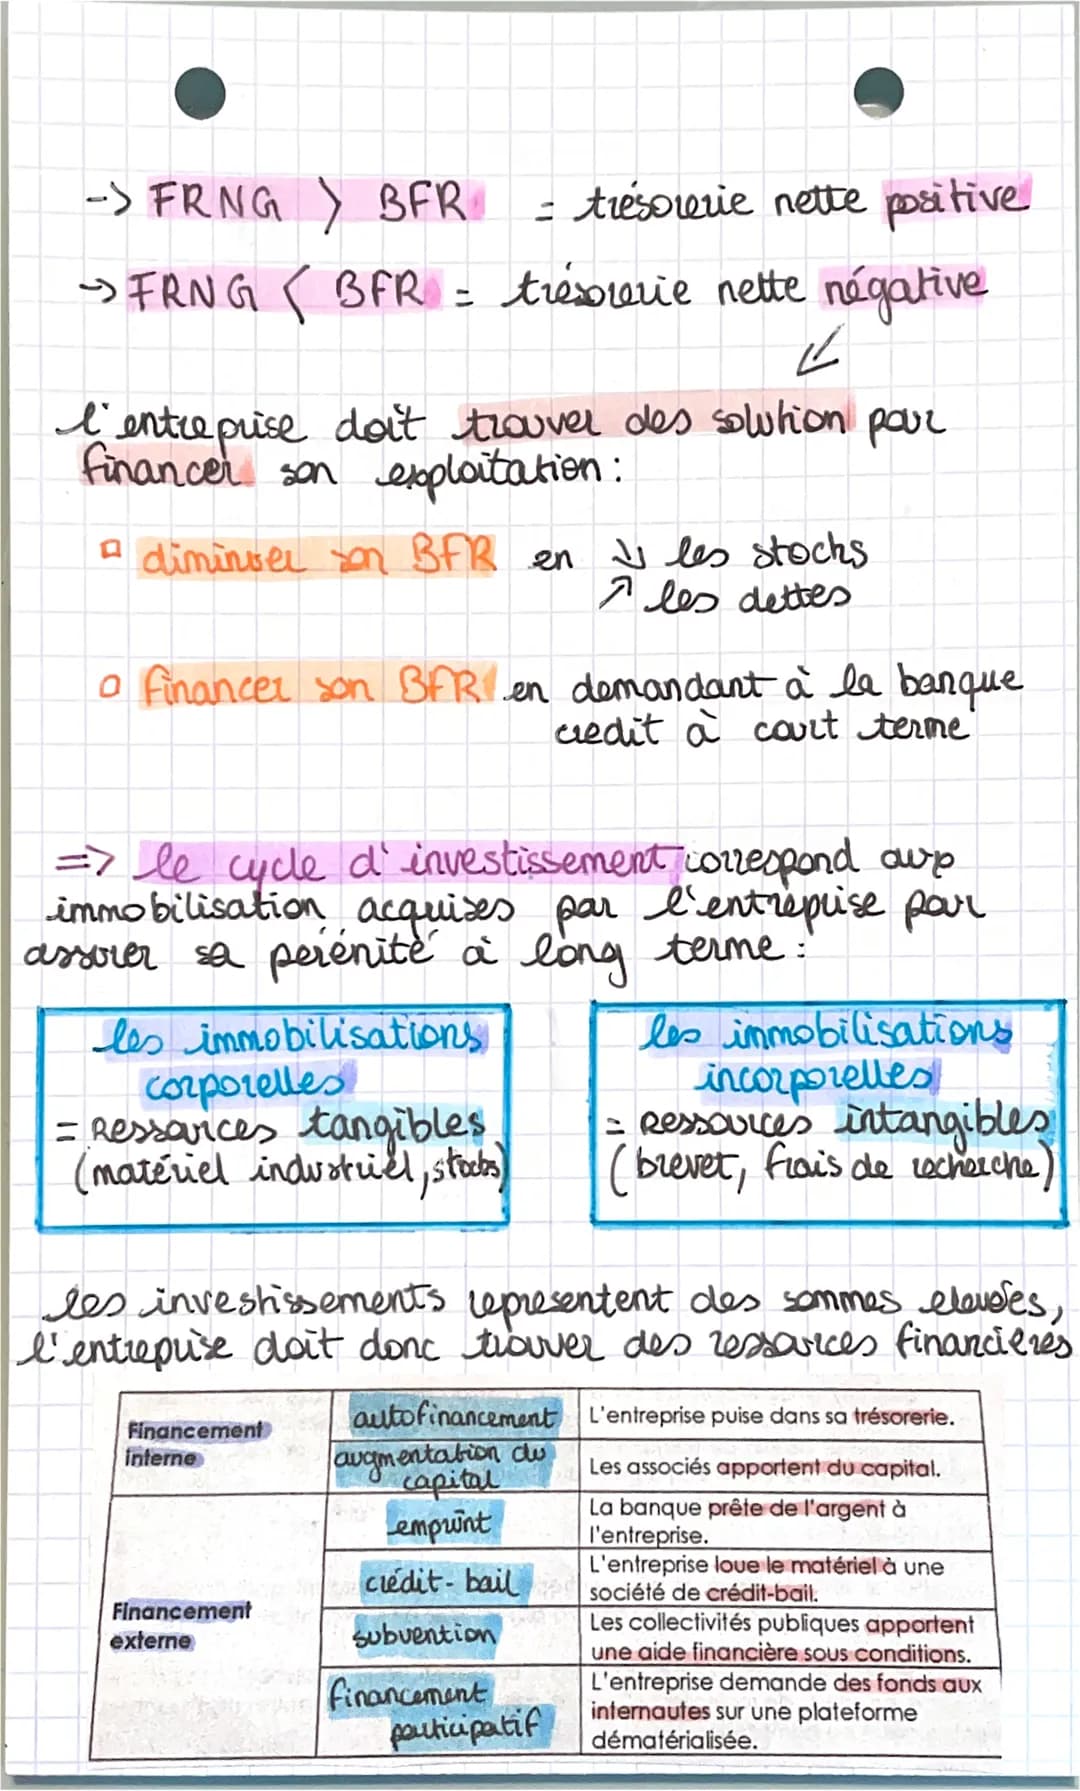 -> FRNG > BFR = trésorerie nette positive
-> FRNG < BFR = trésorerie nette négative
l'entreprise doit trouver des solution pour
financer son exploitation :
diminuer son BFR en ↓ les stocks
↗ les dettes
financer son BFR en demandant à la banque
credit à court terme
=> le cycle d'investissement correspond aux
immobilisation acquises par l'entreprise pour
assurer sa pérénité à long terme :
les immobilisations
corporelles
= Ressources tangibles
(matériel industriel, stocks)
les immobilisations
incorporelles
= Ressources intangibles
(brevet, frais de recherche)
les investissements representent des sommes elevées,
l'entreprise doit donc trouver des ressources financières
Financement
interne
autofinancement
L'entreprise puise dans sa trésorerie.
augmentation du
capital
Les associés apportent du capital.
Financement
externe
emprunt
La banque prête de l'argent à
l'entreprise.
crédit-bail
L'entreprise loue le matériel à une
société de crédit-bail.
subvention
Les collectivités publiques apportent
une aide financière sous conditions.
financement
participatif
L'entreprise demande des fonds aux
internautes sur une plateforme
dématérialisée.